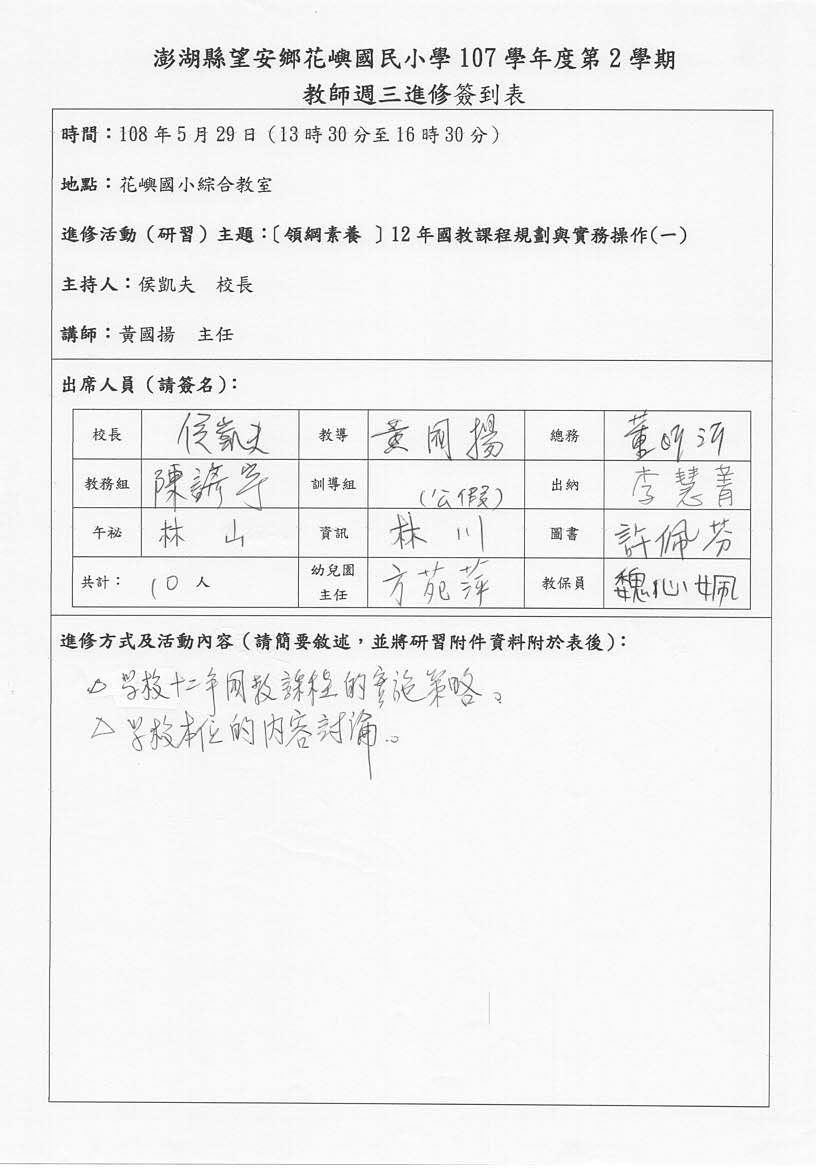 澎湖縣望安鄉花嶼國民小學 107 學年度第 2 學期
教師週三進修簽到表
時間：108 年 5 月 29 日（13 時 30 分至 16 時 30 分）
地點：花嶼國小綜合教室
進修活動（研習）主題：〔領綱素養 〕12 年國教課程規劃與實務操作(一)
主持人：侯凱夫 校長
講師：黃國揚 主任
出席人員（請簽名）：
校長 侯凱夫 教導 黃國揚 總務 董
教務組 陳諺宇 訓導組 （公假） 出納 李慧菁
午祕 林山 資訊 林川 圖書 許佩芬
共計： 10 人 幼兒園主任 方苑萍 教保員 魏心姵
進修方式及活動內容（請簡要敘述，並將研習附件資料附於表後）：
△ 学校十二年國教課程的實施策略。
△ 学校本位的內容討論。